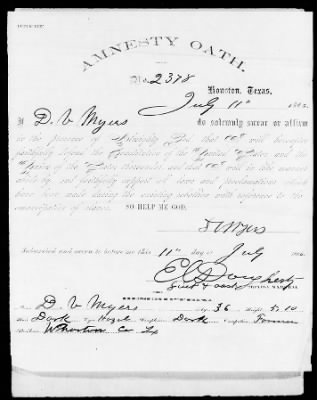 AMNESTY OATH.
No. 2378
Houston, Texas,
July 11th 186
I D. V. Myers do solemnly swear or affirm
in the presence of Almighty God, that I will henceforth
faithfully defend the Constitution of the United States and the
Union of the States thereunder, and that I will in like manner
abide by and faithfully support all laws and proclamations which
have been made during the existing rebellion with reference to the
emancipation of slaves. SO HELP ME GOD.
D V Myers
Subscribed and sworn to before me this 11th day of July 186
E C Dougherty
PROVOST MARSHAL
D. V. Myers Age 36 Height 5,10
Hair Dark Eyes Hazel Complexion Dark Occupation Farmer
Wharton Co Tex